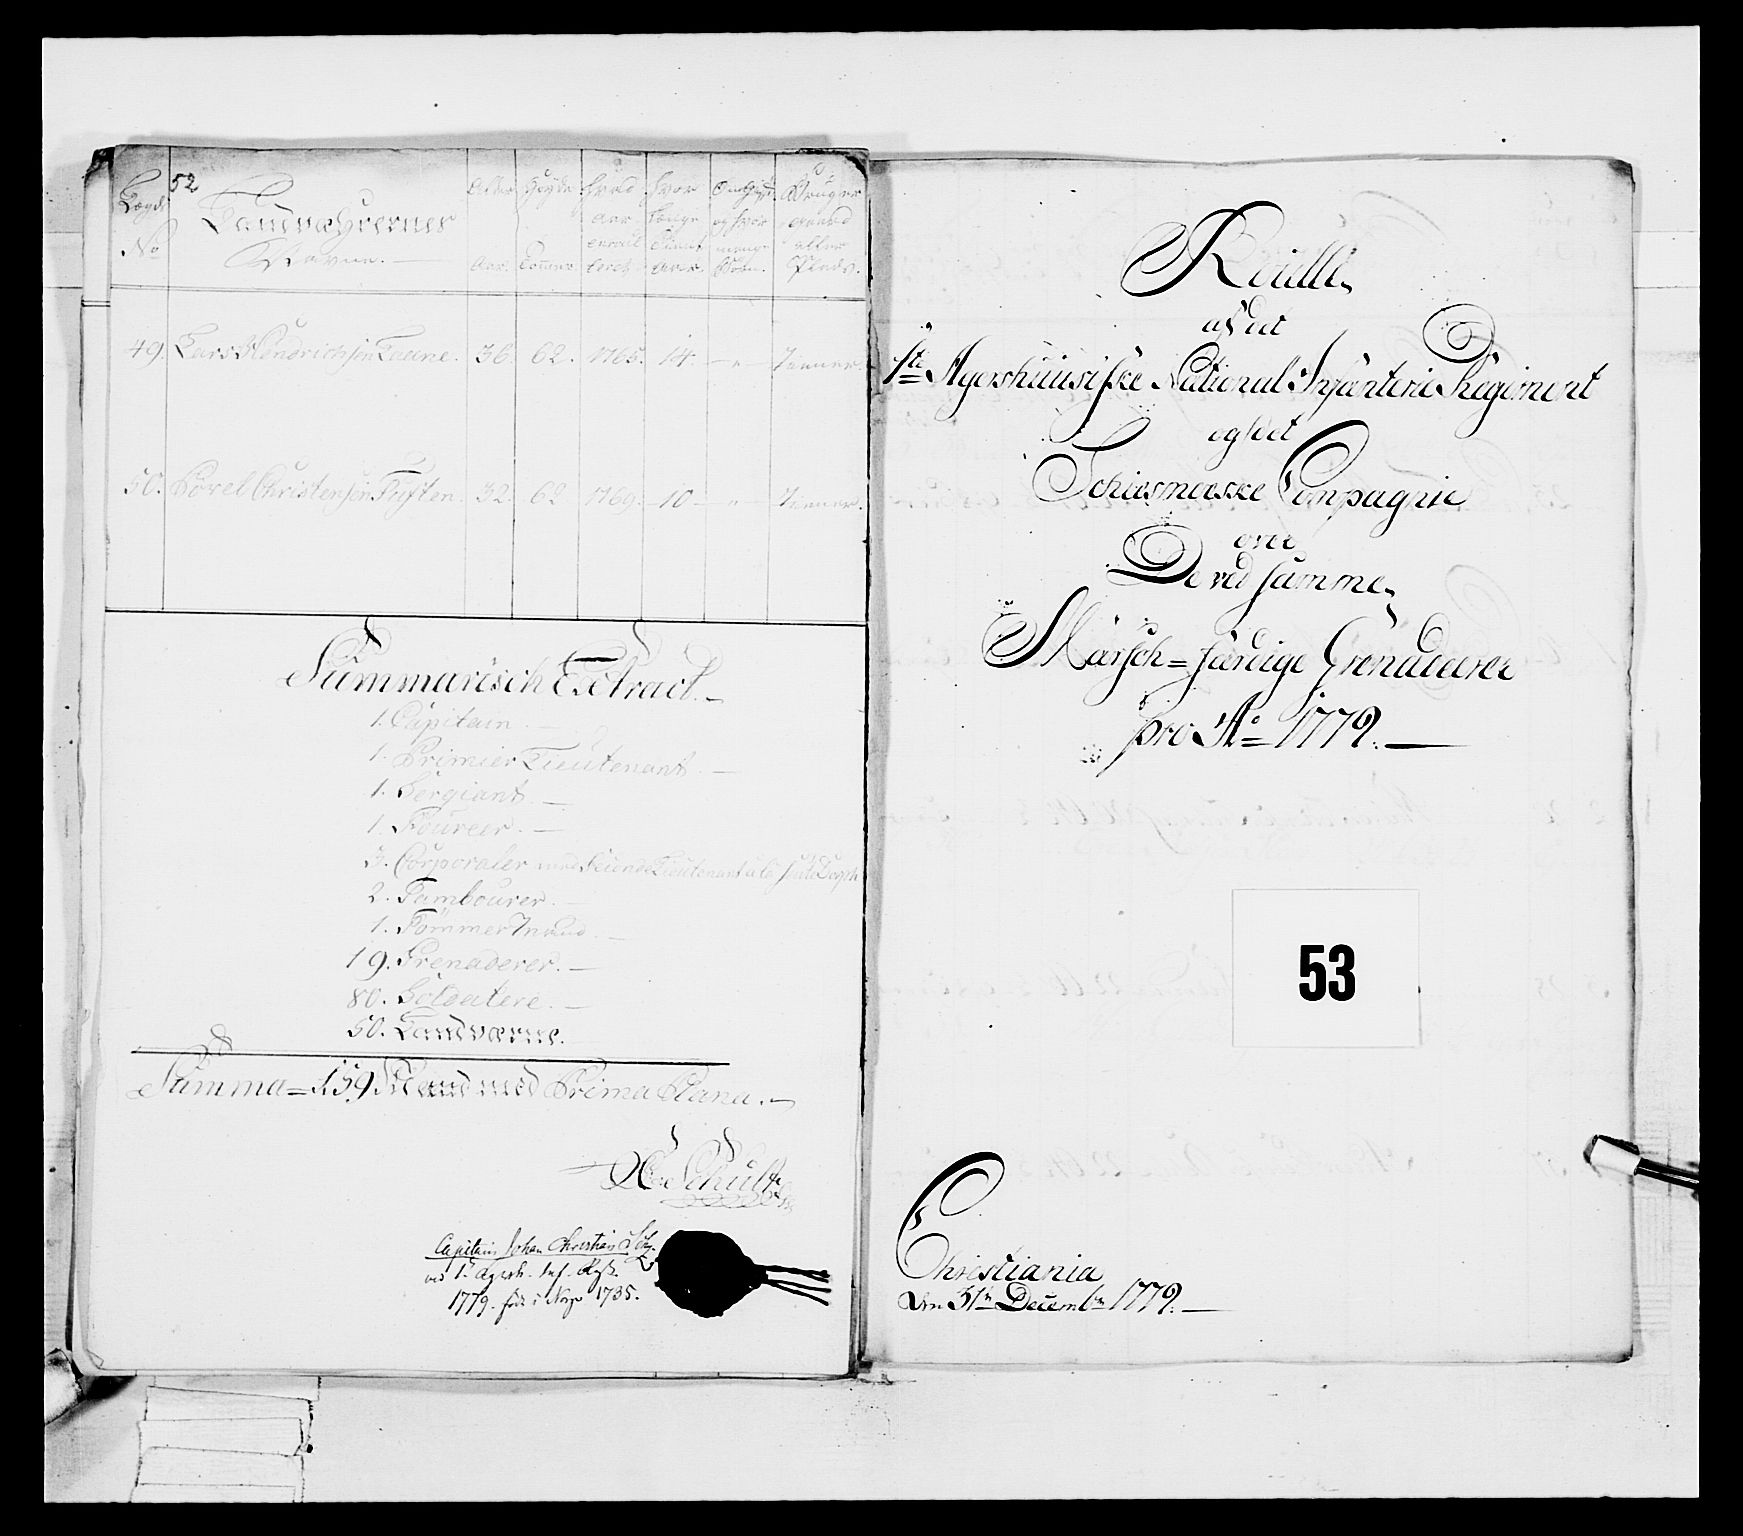 52
Lægds No
Landværnes Navne.
Alder Aar.
Høyde Tommer
Hvad Aar enroulleret
Hvor længe tient Aar.
Om Gift og hvor mange Børn.
Bruger Gaard eller Plads.
49. Lars Hendrichsen 36. 62. 1765. 14. — " — Tiener.
50. Christensen 32. 62 1769. 10 — " — Tiener.
Summarisch Extract.
1. Capitain
1. Primier Lieutenant.
1. Sergiant.
1. Foureer.
3. Corporaler med Seconde Lieutenant a la
2. Tambourer.
1. Tømmermand.
19. Grenaderer.
80. Soldatere.
50. Landværne.
Summa = 159 Mand med Prima Plana.
Schultz
Capitain Johan Christian
ved 1. Agersh. Inf. Regt.
1779. født i Norge 1735.
Roulle
af det
1ste Agershuusiske National Infanterie Regiment
og det
Compagnie
over
De ved samme
Marsch=færdige Grenaderer
pro Ao 1779.
53
Christiania
den 31te Decembr 1779.